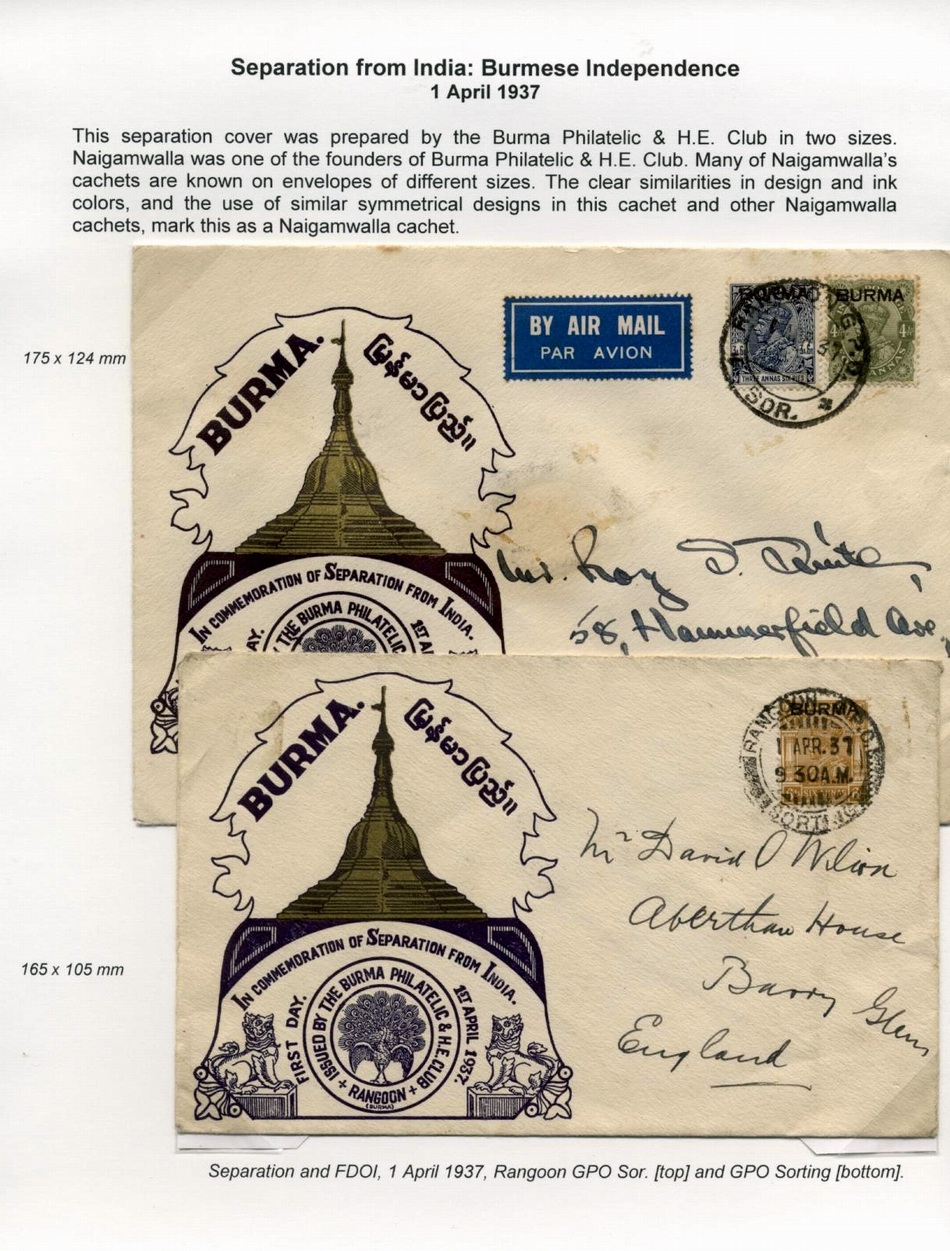 Separation from India: Burmese Independence
1 April 1937
This separation cover was prepared by the Burma Philatelic & H.E. Club in two sizes.
Naigamwalla was one of the founders of Burma Philatelic & H.E. Club. Many of Naigamwalla's
cachets are known on envelopes of different sizes. The clear similarities in design and ink
colors, and the use of similar symmetrical designs in this cachet and other Naigamwalla
cachets, mark this as a Naigamwalla cachet.
175 x 124 mm
BURMA.
မြန်မာပြည်။
BY AIR MAIL
PAR AVION
BURMA
THREE ANNAS SIX PIES
BURMA
SOR.
Mr. Roy
58, Hammerfield Ave,
IN COMMEMORATION OF SEPARATION FROM INDIA.
THE BURMA PHILATELIC
165 x 105 mm
BURMA.
မြန်မာပြည်။
BURMA
RANGOON G.P.O.
1 APR.37
9 30A.M.
SORTING
Mr David O Wilson
Aberthaw House
Barry Glam
England
IN COMMEMORATION OF SEPARATION FROM INDIA.
FIRST DAY.
1ST APRIL 1937.
ISSUED BY THE BURMA PHILATELIC & H.E. CLUB
+ RANGOON +
(BURMA)
Separation and FDOI, 1 April 1937, Rangoon GPO Sor. [top] and GPO Sorting [bottom].